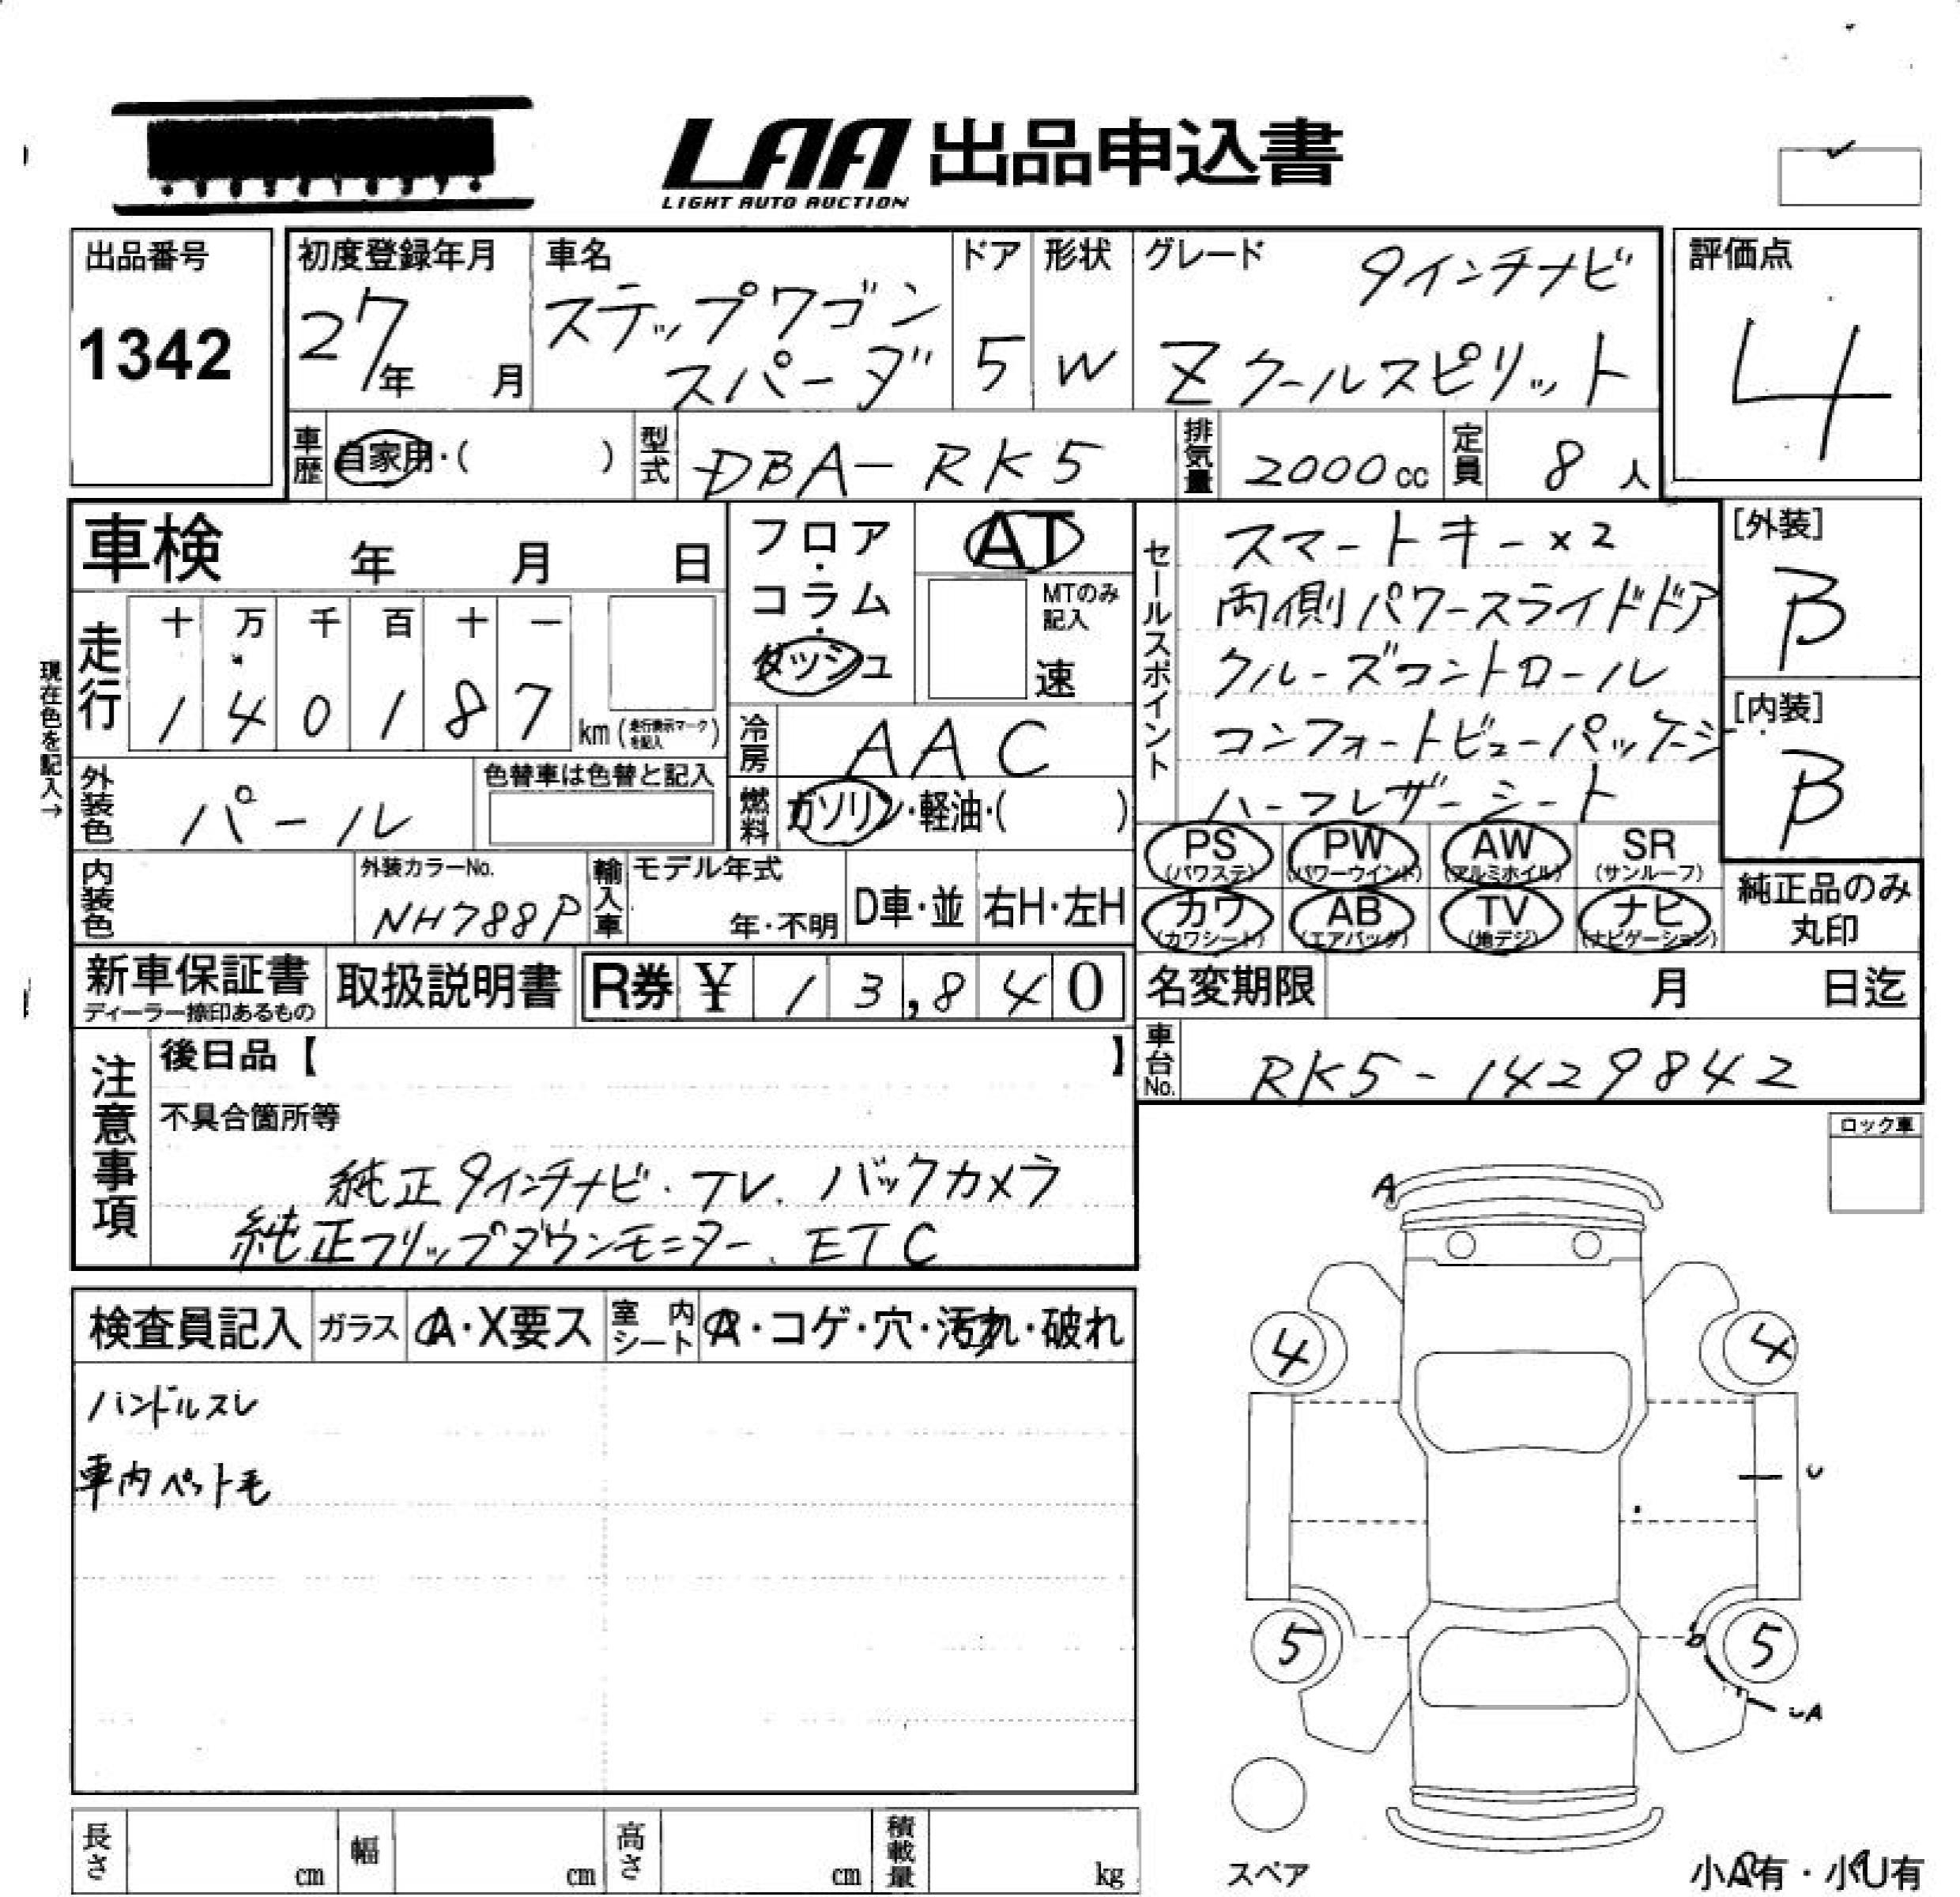 LAA 出品申込書
LIGHT AUTO AUCTION
出品番号
1342
初度登録年月
27年 月
車名
ステップワゴン
スパーダ
ドア
5
形状
W
グレード
9インチナビ
Zクールスピリット
評価点
4
車歴 自家用・( )
型式 DBA-RK5
排気量 2000cc
定員 8人
車検 年 月 日
走行
十 万 千 百 十 一
1 4 0 1 8 7 km (走行表示マークを記入)
現在色を記入→
外装色 パール
色替車は色替と記入
フロア・
コラム・
ダッシュ
AT
MTのみ
記入
速
冷房 AAC
燃料 ガソリン・軽油・( )
セールスポイント
スマートキー×2
両側パワースライドドア
クルーズコントロール
コンフォートビューパッケージ
ハーフレザーシート
[外装]
B
[内装]
B
PS (パワステ)
PW (パワーウインド)
AW (アルミホイル)
SR (サンルーフ)
カワ (カワシート)
AB (エアバッグ)
TV (地デジ)
ナビ (ナビゲーション)
純正品のみ
丸印
内装色
外装カラーNo.
NH788P
輸入車
モデル年式
年・不明
D車・並
右H・左H
新車保証書
ディーラー捺印あるもの
取扱説明書
R券 ¥ 13,840
名変期限 月 日迄
車台No. RK5-1429842
注意事項
後日品【 】
不具合箇所等
純正9インチナビ.TV.バックカメラ
純正フリップダウンモニター.ETC
ロック車
検査員記入
ガラス
A・X要ス
室内シート
A・コゲ・穴・汚れ・破れ
ハンドルスレ
車内ペット毛
A
4 4
U
5 5
b
UA
スペア
小A有・小U有
長さ cm
幅 cm
高さ cm
積載量 kg